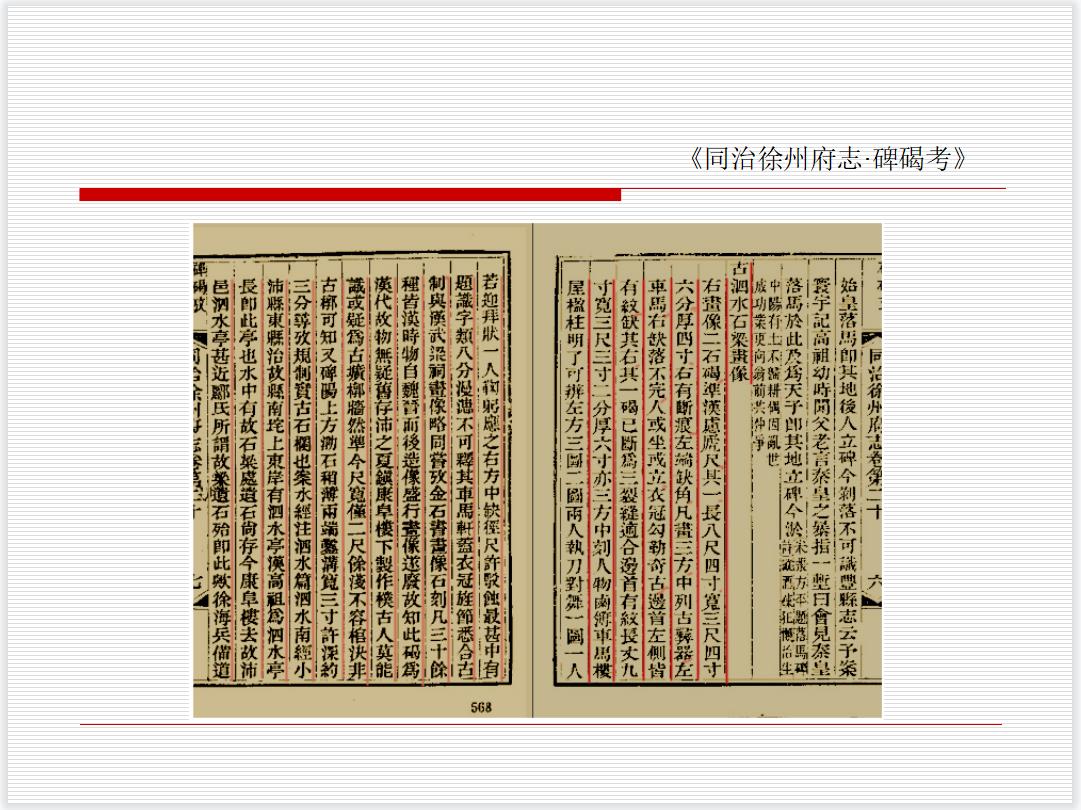 《同治徐州府志·碑碣考》
始皇落馬即其地後人立碑今剝落不可識豐縣志云予案
寰宇記高祖幼時聞父老言秦皇之暴指一塹曰會見秦皇
落馬於此及爲天子即其地立碑今
中陽有土不歸耕偶因亂世
成功業更向翁前
古泗水石梁畫像
右畫像二石碣準漢慮虒尺其一長八尺四寸寬三尺四寸
六分厚四寸右有斷痕左端缺角凡畫三方中列古彝器左
車馬右缺落不完人或坐或立衣冠勾勒奇古邊首左側皆
有紋缺其右其一碣已斷爲三裂縫適合邊首有紋長丈九
寸寬三尺三寸二分厚六寸亦三方中刻人物鹵簿車馬樓
屋楹柱明了可辨左方三圖二圖兩人執刀對舞一圖一人
若迎拜狀一人鞠躬應之右方中缺徑尺許駮蝕最甚中有
題識字類八分漫漶不可釋其車馬軒蓋衣冠旌節悉合古
制與漢武梁祠畫像略同嘗攷金石書畫像石刻凡三十餘
種皆漢時物自魏晉而後造像盛行畫像遂廢故知此碣爲
漢代故物無疑舊存沛之夏鎮康阜樓下製作樸古人莫能
識或疑爲古壙槨牆然準今尺寬僅二尺餘淺不容棺決非
古槨可知又碑陽上方泐石稍薄兩端鑿溝寬三寸許深約
三分尋攷規制實古石欄也案水經注泗水篇泗水南經小
沛縣東縣治故縣南垞上東岸有泗水亭漢高祖爲泗水亭
長即此亭也水中有故石梁處遺石尚存今康阜樓去故沛
邑泗水亭甚近酈氏所謂故梁遺石殆即此歟徐海兵備道
碑碣攷
同治徐州府志卷第二十
六
七
568